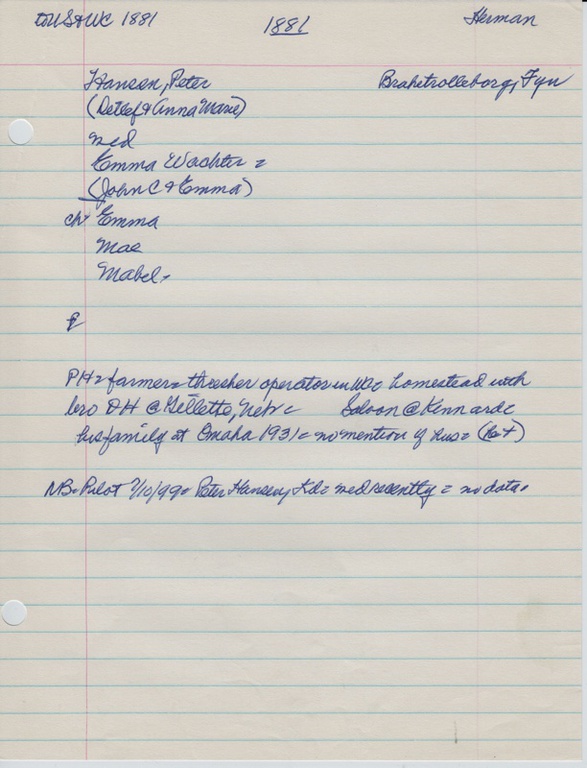 to US & WC 1881 1881 Herman
Hansen, Peter Brahetrolleborg, Fyn
(Detlef & Anna Marie)
med
Emma Wachter =
(John C & Emma)
ch: Emma
Mae
Mabel.
PH = farmer = thresher operator in WC = homestead with
bro DH @ Gillette, Nebr = Saloon @ Kennard =
his family at Omaha 1931 = no mention of hus =
NB = Pilot 7/10/99 = Peter Hansen, Kd = med recently = no data.